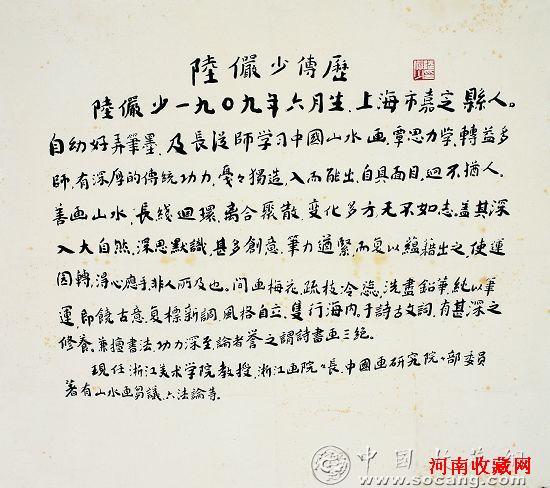 陸儼少傳歷
陸儼少一九〇九年六月生，上海市嘉定縣人。
自幼好弄筆墨，及長從师学习中國山水画，覃思力学，轉益多
师，有深厚的傳統功力，戛々獨造，入而能出，自具面目，迥不猶人，
善画山水，長綫迴環，離合聚散，变化多方，无不如志，蓋其深
入大自然，深思默識，甚多創意，筆力遒緊，而复以蕴藉出之，使運
因轉，得心應手，非人所及也。间画梅花，疏枝冷蕊，洗盡鉛華，純以筆
運，即饒古意，复標新調，風格自立，隻行海内，于詩古文詞，有甚深之
修養，兼擅書法，功力深至，論者誉之謂詩書画三絕。
现任浙江美术学院教授，浙江画院々長，中國画研究院々部委员
著有山水画芻議，六法論等。
中国收藏网
www.socang.com
河南收藏网